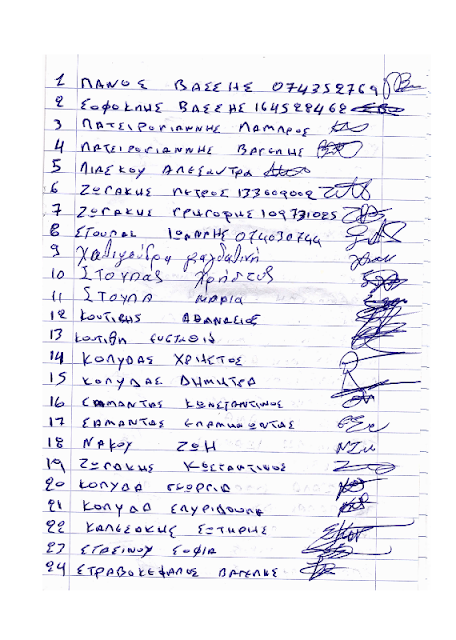 1 ΠΑΝΟΣ ΒΑΣΣΗΣ 074352769
2 ΣΟΦΟΚΛΗΣ ΒΑΣΣΗΣ 164528468
3 ΠΑΤΣΙΡΟΓΙΑΝΝΗΣ ΛΑΜΠΡΟΣ
4 ΠΑΤΣΙΡΟΓΙΑΝΝΗΣ ΒΑΓΓΕΛΗΣ
5 ΑΛΕΞΑΝΤΡΑ
6 ΖΩΓΑΚΗΣ ΠΕΤΡΟΣ 133609002
7 ΖΩΓΑΚΗΣ ΓΡΗΓΟΡΗΣ 109731025
8 ΣΤΟΥΠΑΣ ΙΩΑΝΝΗΣ 074030744
9
10 ΣΤΟΥΠΑΣ Χρήστος
11 ΣΤΟΥΠΑ ΜΑΡΙΑ
12 ΚΟΥΤΙΒΗΣ ΑΘΑΝΑΣΙΟΣ
13 ΚΟΥΤΙΒΗ ΕΥΣΤΑΘΙΑ
14 ΚΟΛΥΔΑΣ ΧΡΗΣΤΟΣ
15 ΚΟΛΥΔΑΣ ΔΗΜΗΤΡΑ
16 ΣΑΜΑΝΤΑΣ ΚΩΝΣΤΑΝΤΙΝΟΣ
17 ΣΑΜΑΝΤΑΣ ΕΠΑΜΗΝΩΝΤΑΣ
18 ΝΑΚΟΥ ΖΩΗ
19 ΖΩΓΑΚΗΣ ΚΩΣΤΑΝΤΙΝΟΣ
20 ΚΟΛΥΔΑ ΓΕΩΡΓΙΑ
21 ΚΟΛΥΔΑ ΣΠΥΡΙΔΟΥΛΑ
22 ΣΩΤΗΡΗΣ
23 ΣΤΑΣΙΝΟΥ ΣΟΦΙΑ
24 ΣΤΡΑΒΟΚΕΦΑΛΟΣ ΒΑΓΕΛΗΣ